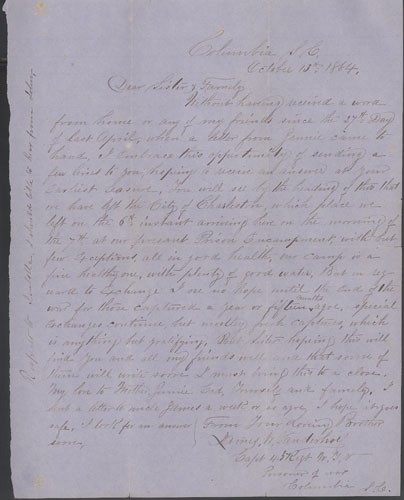 Columbia, S.C.
October 13th 1864.
Dear Sister & Family
Without having received a word
from home or any of my friends since the 27th Day
of last April, when a letter from Jennie came to
hand, I embrace this opportunity of sending a
few lines to you, hoping to receive an answer at your
earliest leasure. You will see by the heading of this that
we have left the City of Charleston, which place we
left on the 6th instant arriving here on the morning of
the 7th at our present Prison Encampment, with but
few exceptions, all in good health, our camp is a
fine healthy one, with plenty of good water. But in re
gard to Exchange I see no hope until the end of the
war for those captured a year or fifteen months ago. special
Exchanges continue, but mostly fresh captures, which
is anything but gratifying. But hoping this will
find you and all my friends well and that some of
them will write soon I must bring this to a close.
My love to Mother, Jennie and family. I
sent a letter to uncle James a week or so ago. I hope it goes
safe, & look for an answer From your loving Brother
soon,
Capt 45 Regt N.Y.V
Prisoner of war
Columbia S.C.